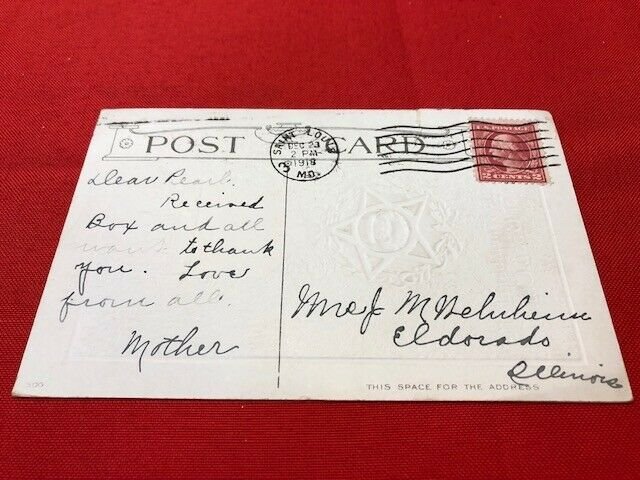 POST CARD
SAINT LOUIS
DEC 23
2 PM
1918
MO.
U.S. POSTAGE
2 CENTS 2
Dear Pearl.
Received
Box and all
want to thank
you. Love
from all.
Mother
Mrs J
Eldorado
Illinois
THIS SPACE FOR THE ADDRESS